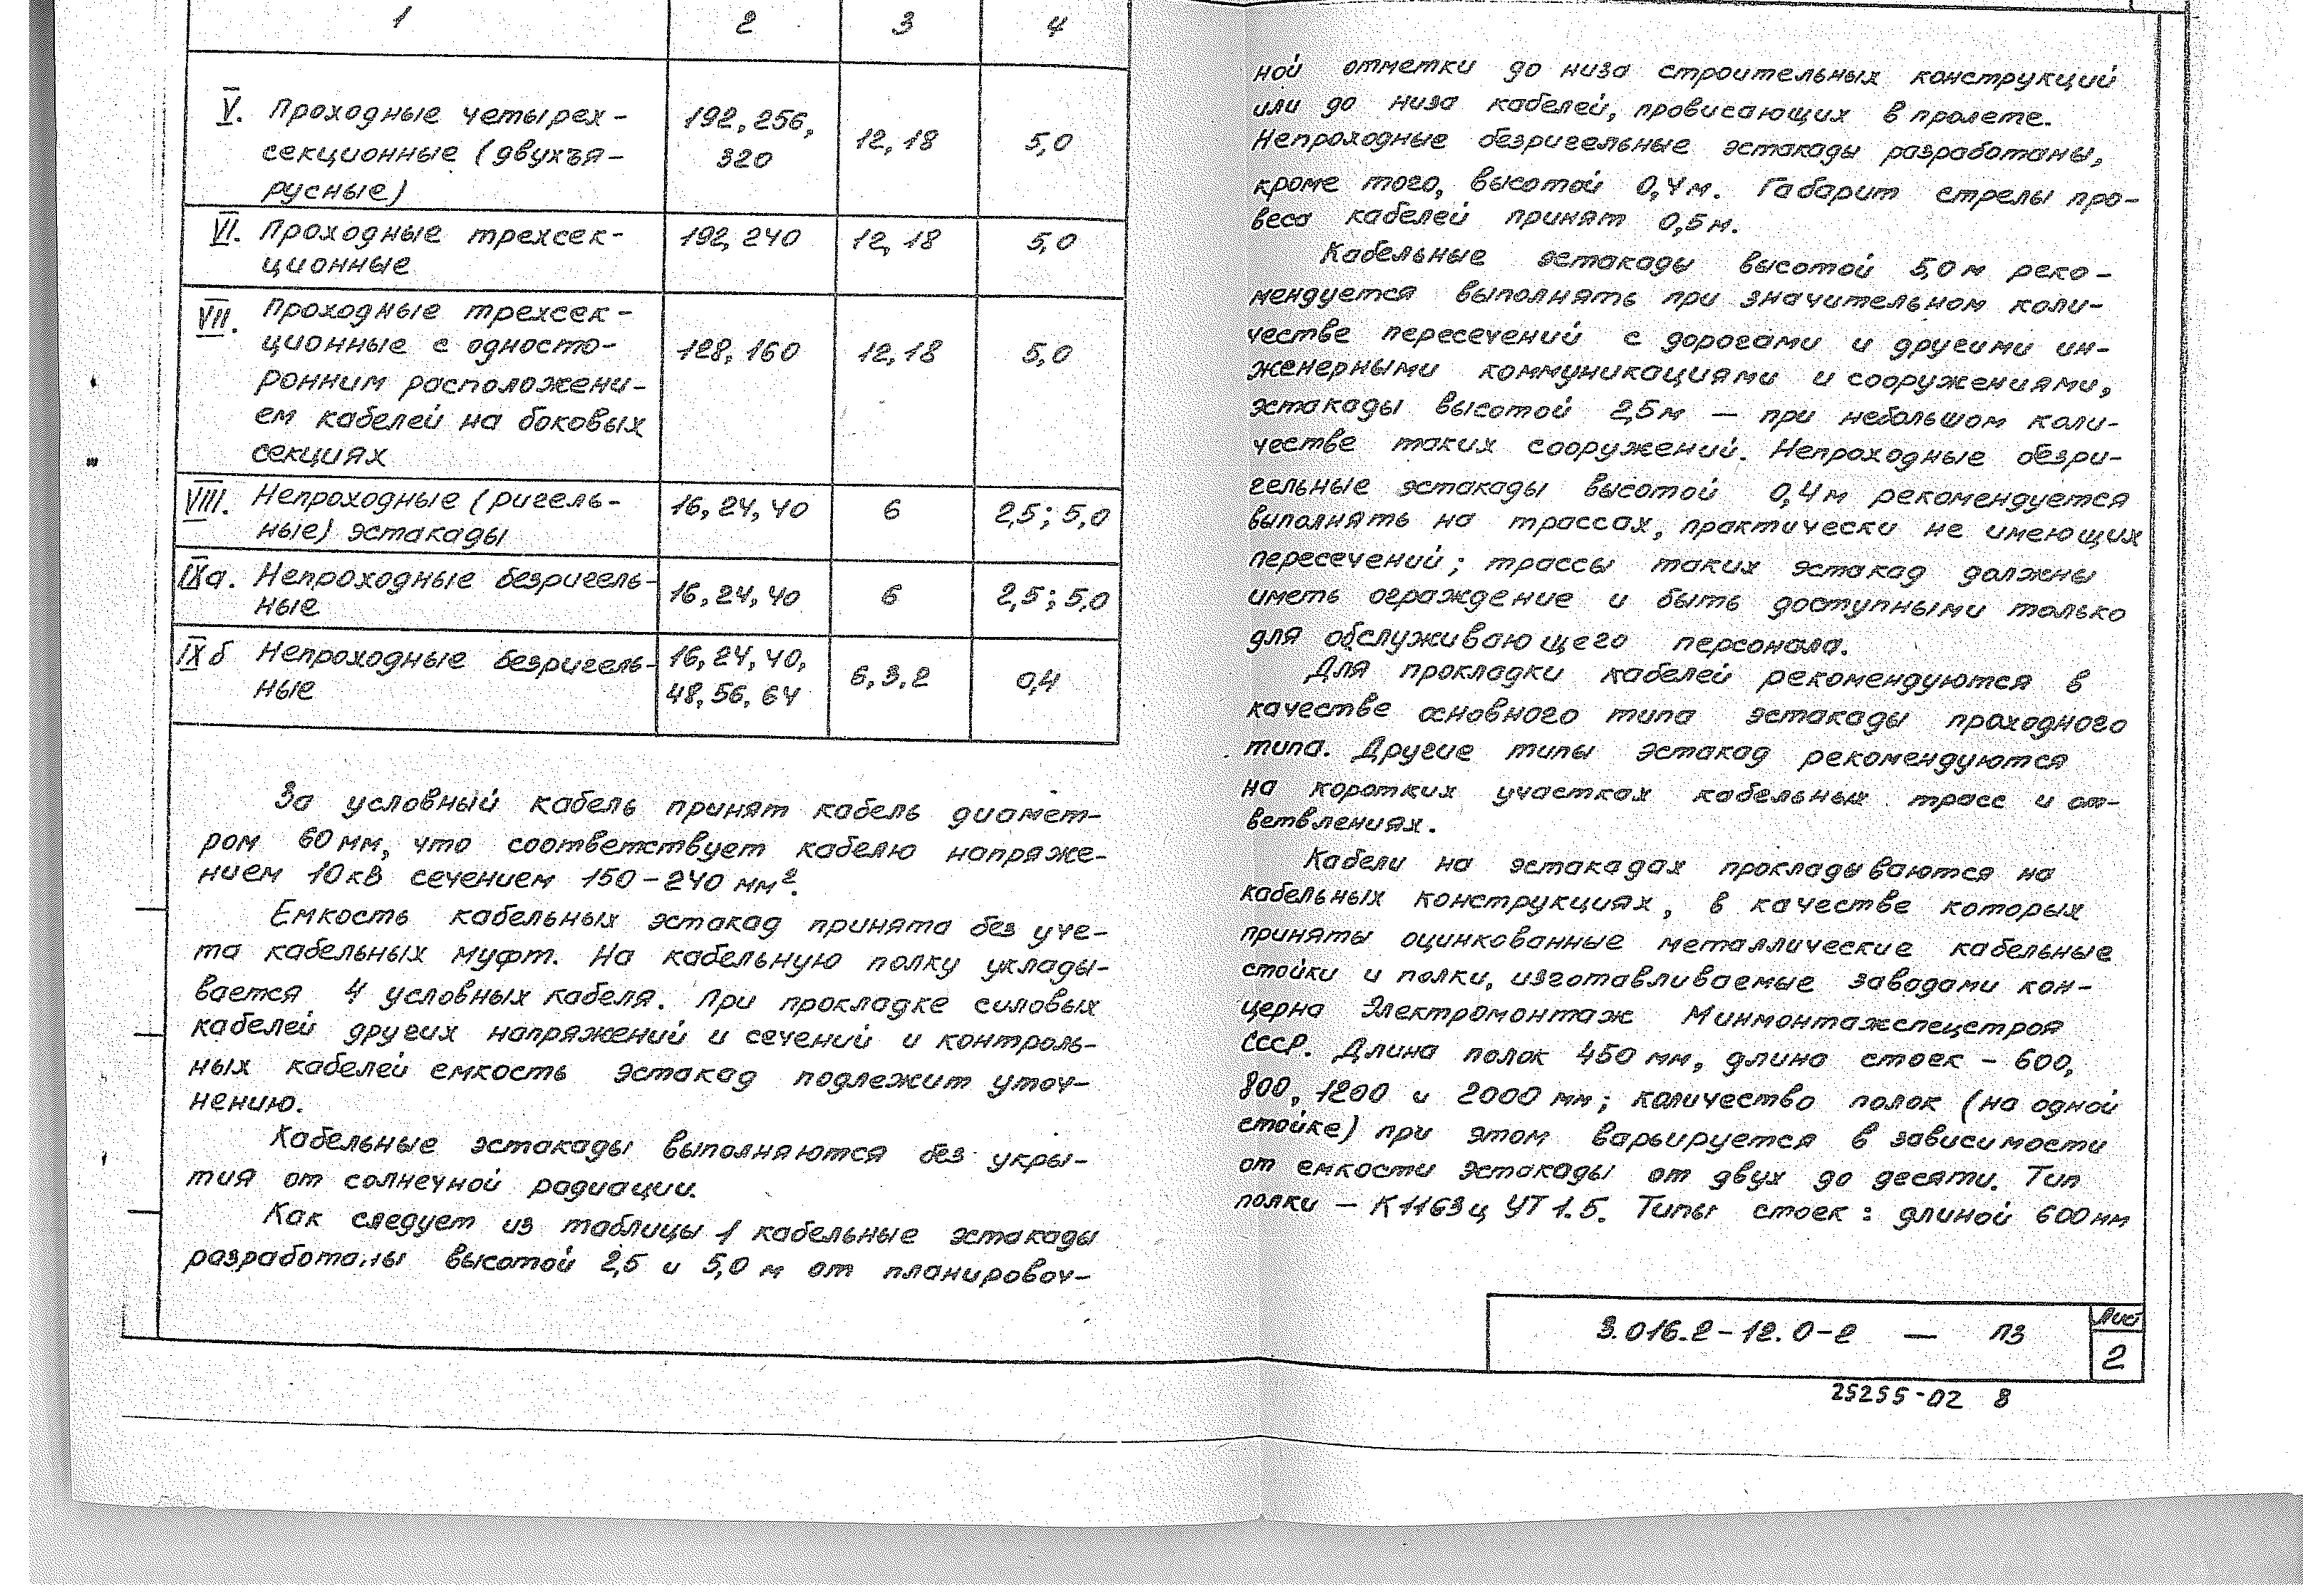 1 2 3 4
V. Проходные четырех-
секционные (двухъя-
русные)
192, 256,
320
12, 18
5,0
VI. Проходные трехсек-
ционные
192, 240
12, 18
5,0
VII. Проходные трехсек-
ционные с односто-
ронним расположени-
ем кабелей на боковых
секциях
128, 160
12, 18
5,0
VIII. Непроходные (ригель-
ные) эстакады
16, 24, 40
6
2,5; 5,0
IXа. Непроходные безригель-
ные
16, 24, 40
6
2,5; 5,0
IXб Непроходные безригель-
ные
16, 24, 40,
48, 56, 64
6, 3, 2
0,4
За условный кабель принят кабель диамет-
ром 60 мм, что соответствует кабелю напряже-
нием 10 кВ сечением 150-240 мм².
Емкость кабельных эстакад принята без уче-
та кабельных муфт. На кабельную полку уклады-
вается 4 условных кабеля. При прокладке силовых
кабелей других напряжений и сечений и контроль-
ных кабелей емкость эстакад подлежит уточ-
нению.
Кабельные эстакады выполняются без укры-
тия от солнечной радиации.
Как следует из таблицы 1 кабельные эстакады
разработаны высотой 2,5 и 5,0 м от планировоч-
ной отметки до низа строительных конструкций
или до низа кабелей, провисающих в пролете.
Непроходные безригельные эстакады разработаны,
кроме того, высотой 0,4 м. Габарит стрелы про-
веса кабелей принят 0,5 м.
Кабельные эстакады высотой 5,0 м реко-
мендуется выполнять при значительном коли-
честве пересечений с дорогами и другими ин-
женерными коммуникациями и сооружениями,
эстакады высотой 2,5 м — при небольшом коли-
честве таких сооружений. Непроходные безри-
гельные эстакады высотой 0,4 м рекомендуется
выполнять на трассах, практически не имеющих
пересечений; трассы таких эстакад должны
иметь ограждение и быть доступными только
для обслуживающего персонала.
Для прокладки кабелей рекомендуются в
качестве основного типа эстакады проходного
типа. Другие типы эстакад рекомендуются
на коротких участках кабельных трасс и от-
ветвлениях.
Кабели на эстакадах прокладываются на
кабельных конструкциях, в качестве которых
приняты оцинкованные металлические кабельные
стойки и полки, изготавливаемые заводами кон-
церна Электромонтаж Минмонтажспецстроя
СССР. Длина полок 450 мм, длина стоек - 600,
800, 1200 и 2000 мм; количество полок (на одной
стойке) при этом варьируется в зависимости
от емкости эстакады от двух до десяти. Тип
полки — К1163ц УТ 1.5. Типы стоек: длиной 600 мм
3.016.2-12.0-2 — ПЗ
Лист
2
25255-02 8